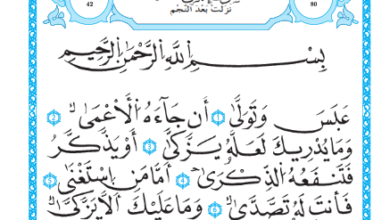 80
نزلت بعد النجم
42
بِسْمِ اللَّهِ الرَّحْمَٰنِ الرَّحِيمِ
عَبَسَ وَتَوَلَّىٰٓ ١ أَن جَآءَهُ الْأَعْمَىٰ ٢
وَمَا يُدْرِيكَ لَعَلَّهُۥ يَزَّكَّىٰٓ ٣ أَوْ يَذَّكَّرُ
فَتَنفَعَهُ الذِّكْرَىٰٓ ٤ أَمَّا مَنِ اسْتَغْنَىٰ ٥
فَأَنتَ لَهُۥ تَصَدَّىٰ ٦ وَمَا عَلَيْكَ أَلَّا يَزَّكَّىٰ